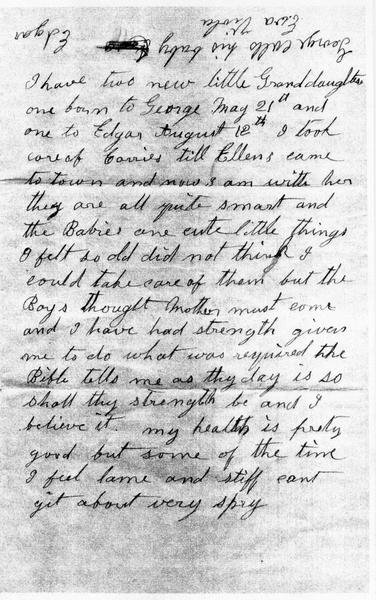 George calls his baby
Ezra Viola
Edgar
I have two new little Granddaughters
one born to George May 21st and
one to Edgar August 12th I took
care of Carries till Ellens came
to town and now I am with her
they are all quite smart and
the Babies are cute little things
I felt so old did not think I
could take care of them but the
Boys thought Mother must come
and I have had strength given
me to do what was required the
Bible tells me as thy day is so
shall thy strength be and I
believe it. my health is pretty
good but some of the time
I feel lame and stiff cant
git about very spry